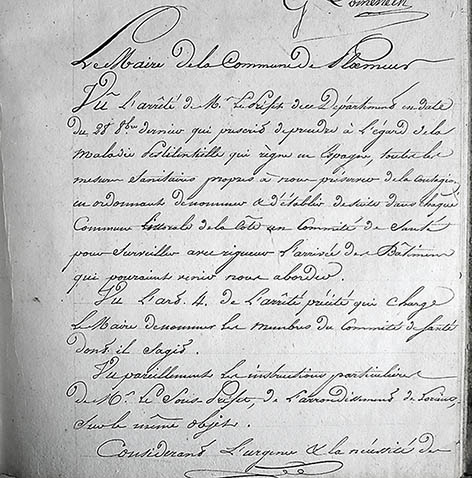 Le Maire de la Commune de Ploemeur
Vu L'arrêté de Mr. Le Préfet de ce Département en date
du 28 8bre dernier qui prescrit de prendre à l'égard de la
Maladie Pestilentielle qui règne en Espagne, toutes les
mesures Sanitaires propres à nous préserver de la Contagion,
en ordonnant de nommer & d'établir de suite dans chaque
Commune Littorale de la Côte un Comité de Santé
pour Surveiller avec rigueur L'arrivée des Bâtimens
qui pouraient venir nous aborder.
Vu L'art. 4. de L'arrêté précité qui charge
Le Maire de nommer les membres du Committé de Santé
dont il Sagit.
Vu pareillement les instructions particulières
de Mr. le Sous-Préfet, de L'arrondissement de Lorient,
Sur le même objet.
Considérant L'urgence & la nécéssité de